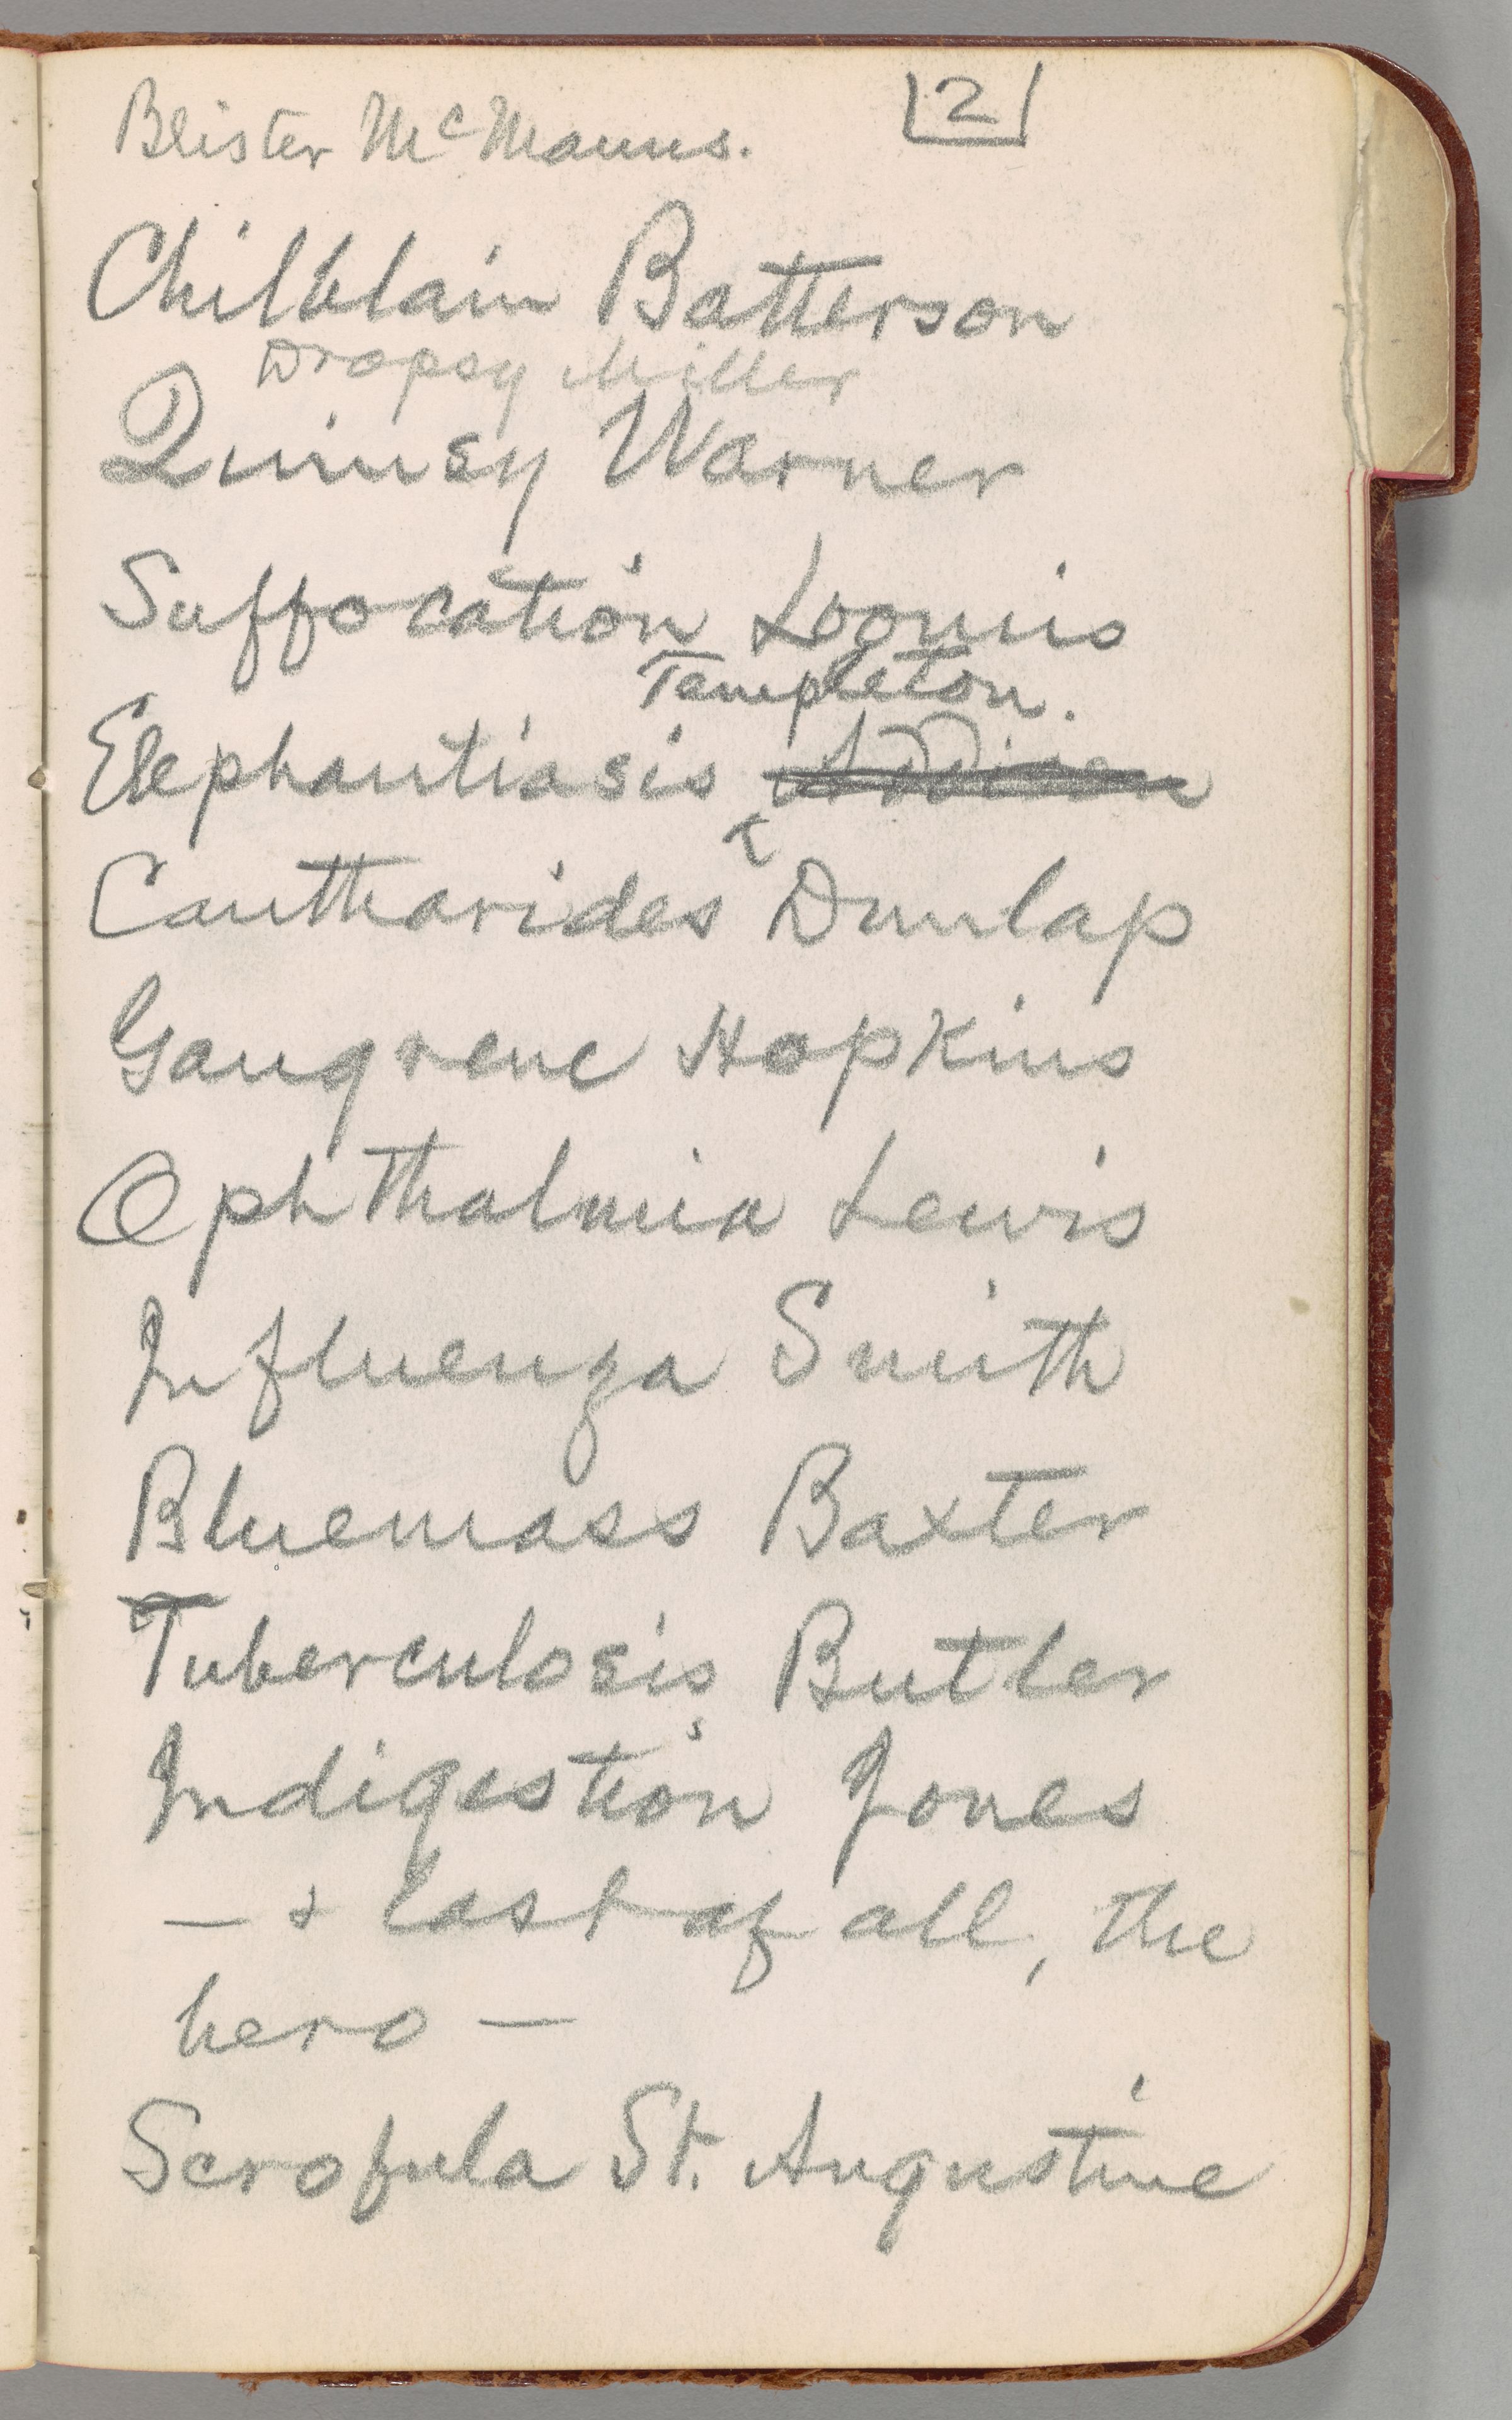 Blister McManus. 2
Chilblain Batterson
Dropsy Miller
Quinsy Warner
Suffocation Loomis
Templeton.
Elephantiasis Addison
Cantharides Dunlap
Gangrene Hopkins
Ophthalmia Lewis
Influenza Smith
Bluemass Baxter
Tuberculosis Butler
Indigestion Jones
— & last of all, the
hero —
Scrofula St. Augustine